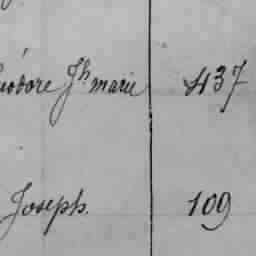 éodore Jh marie 437
Joseph. 109